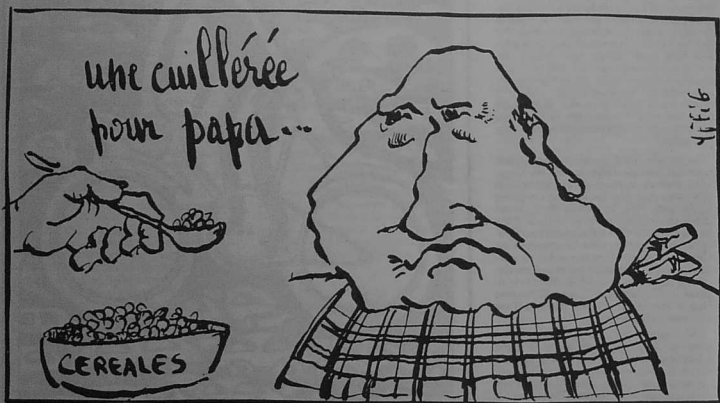 une cuillérée
pour papa...
CEREALES